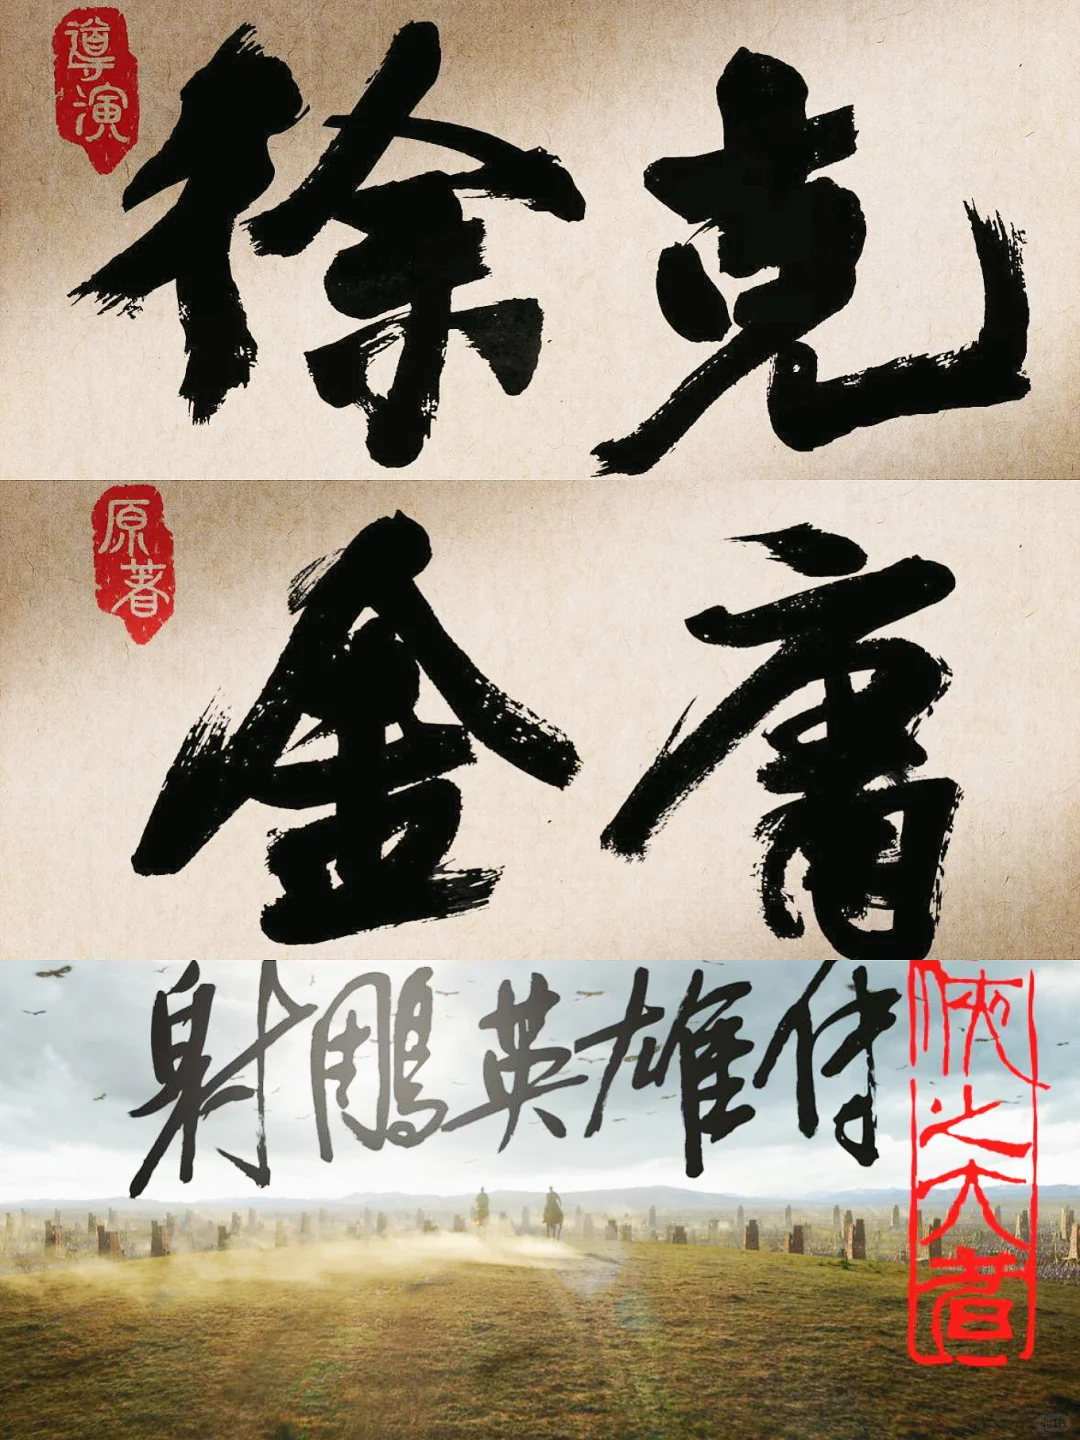 導演
徐克
原著
金庸
射鵰英雄傳
俠之大者